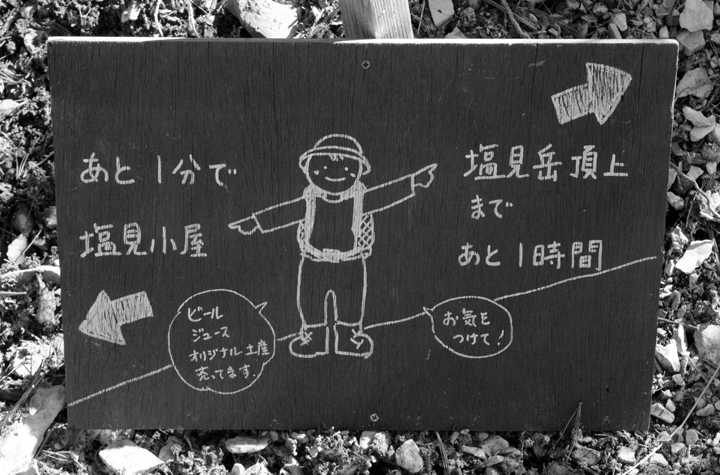 あと1分で
塩見小屋
塩見岳頂上
まで
あと1時間
ビール
ジュース
オリジナル土産
売ってます.
お気を
つけて!